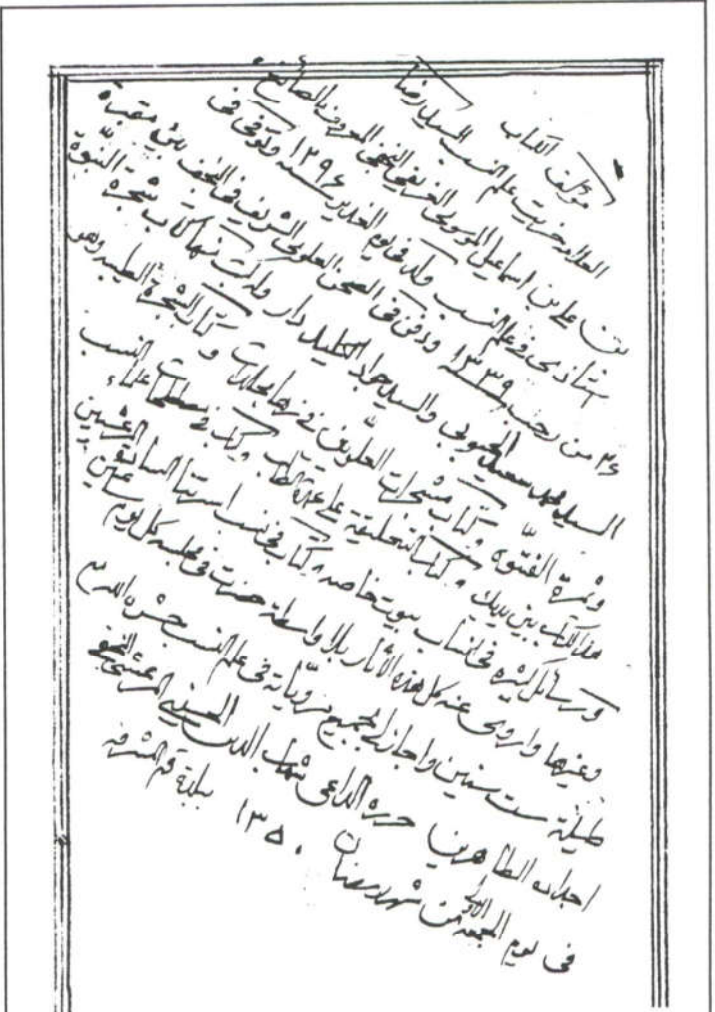 مؤلف الكتاب
العلامة خريت علم النسب السيد رضا
بن علي بن اسماعيل الموسوي الغريفي النجفي المعروف بالصائغ
استاذي في علم النسب ولد في يوم الغدير سنة ١٢٩٦ وتوفي في
٢٦ من رجب سنة ١٣٣٩ ودفن في الصحن العلوي الشريف في النجف بين مقبرة
السيد محمد سعيد الحبوبي والسيد جواد الكليدار وله كتب منها كتاب شجرة النبوة
وثمرة الفتوة وكتاب مشجرات العلويين في مجلدات وكتاب الشجرة الطيبة وهو
هذا الكتاب بين يديك وكتاب التعليقة على عمدة الطالب وكتاب في مصطلحات علماء النسب
ورسائل كثيرة في انساب بيوت خاصه وكتاب في نسب اسرتنا السادة المرعشيين
وغيرها واروي عنه كل هذه الآثار بلا واسطة حضرت في مجلسه كل يوم ساعتين
طيلة ست سنين واجاز لي جميع مروياته في علم النسب حشره الله مع
اجداده الطاهرين حرره الداعي شهاب الدين الحسيني المرعشي النجفي
في يوم الجمعة الاولى من شهر رمضان ١٣٥٠ ببلدة قم المشرفة